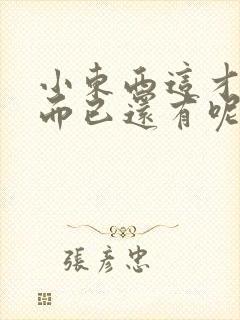 小東西這才
而已還有呢
張彥忠